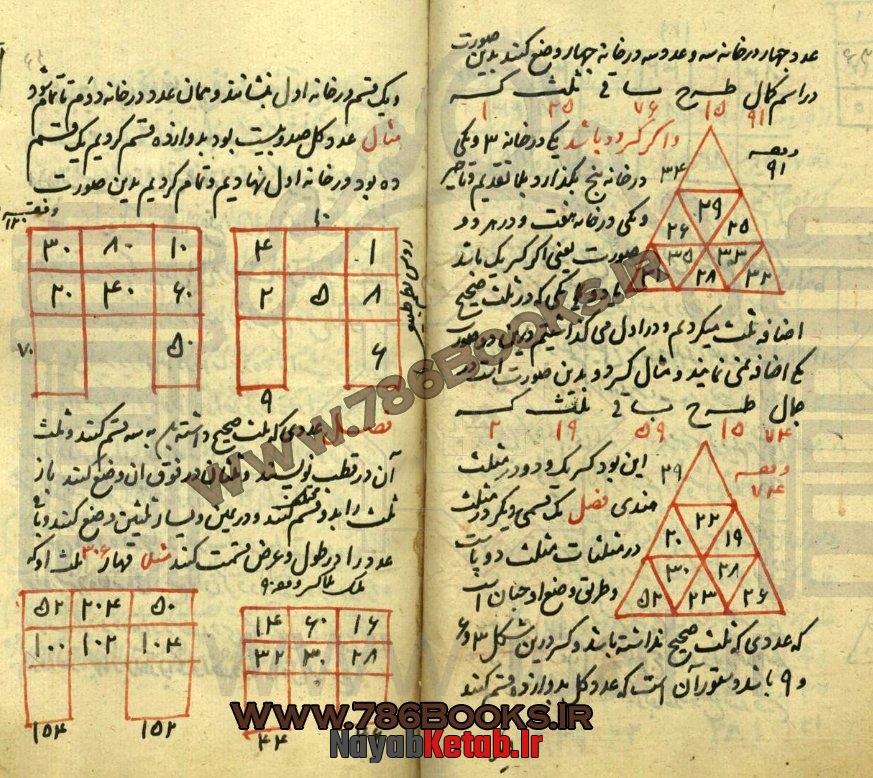 عدد چهار در خانه سه و عدد سه در خانه چهار وضع کنند بدین صورت
در اسم کمال طرح باقی ثلث کسر
۹۱ ۱۵ ۷۶ ۲۵ ۱
و اگر کسر دو باشد یکی در خانه ۳ و یکی
وفقه ۹۱
۳۴
در خانه پنج بگذارد
۲۹
۲۶ ۲۵
۳۵ ۳۳
۳۱ ۲۸ ۳۲
و یکی در خانه هفت و در هر دو
صورت یعنی اگر کسر یک باشد
یکی که در ثلث صحیح
اضافه ثلث میکردیم و در اول می گذاشتیم درین دو صورت
یک اضافه نمی نمایند و مثال کسر دو بدین صورت است در
جمال طرح باقی ثلث کسر
۷۴ ۱۵ ۵۹ ۱۹ ۲
این بود کسر یک و دو در مثلث
وفقه ۷۴
۲۹
هندی فصل یک قسمی دیگر در مثلث
۲۲
۲۰ ۱۹
در مثلثات مثلث دو پا است
۳۰ ۲۸
۵۲ ۲۳ ۲۶
و طریق وضع او چنان است
که عددی که ثلث صحیح نداشته باشد و کسر درین شکل ۳ و ۶
و ۹ باشد دستور آن است که عدد کل بدوازده قسم کنند
و یک قسم در خانه اول بنشانند و همان عدد در خانه دوم تا تمام شود
مثال عدد کل صد و بیست بود بدوازده قسم کردیم یک قسم
ده بود در خانه اول نهادیم و تمام کردیم بدین صورت
وفقه ۱۲۰
۳۰ ۸۰ ۱۰
۲۰ ۴۰ ۶۰
۷۰ ۵۰
۱۰
۴ ۱
۲ ۵ ۸
۶
۹
فصل عددی که ثلث صحیح داشته باشد به سه قسم کنند و ثلث
آن در قطب نویسند و ثلثان در فوق آن وضع کنند باز
ثلث را بدو قسم کنند و در یمین و یسار ثلثین وضع کنند و باقی
عدد را در طول و عرض قسمت کنند مثلا قهار ۳۰۶ ثلث او که
۵۲ ۲۰۴ ۵۰
۱۰۰ ۱۰۲ ۱۰۴
۱۵۴ ۱۵۲
۱۴ ۶۰ ۱۶
۳۲ ۳۰ ۲۸
۴۴
www.786Books.ir
www.786Books.IR
NayabKetab.Ir